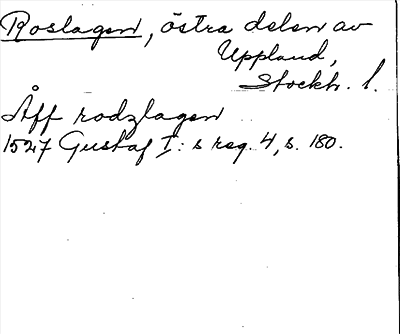 Roslagen, östra delen av
Uppland,
Stockh. l.
Åff rodzlagen
1527 Gustaf I:s reg. 4, s. 180.